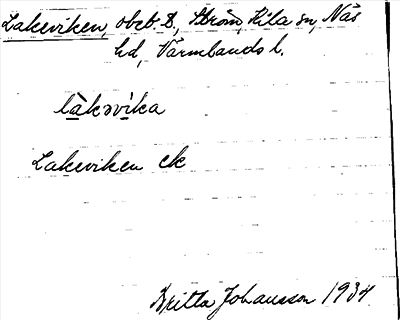 Lakeviken, obeb. Ström, Kila sn, Näs
hd, Värmlands l.
làkəvika
Lakeviken ek
Britta Johansson 1934